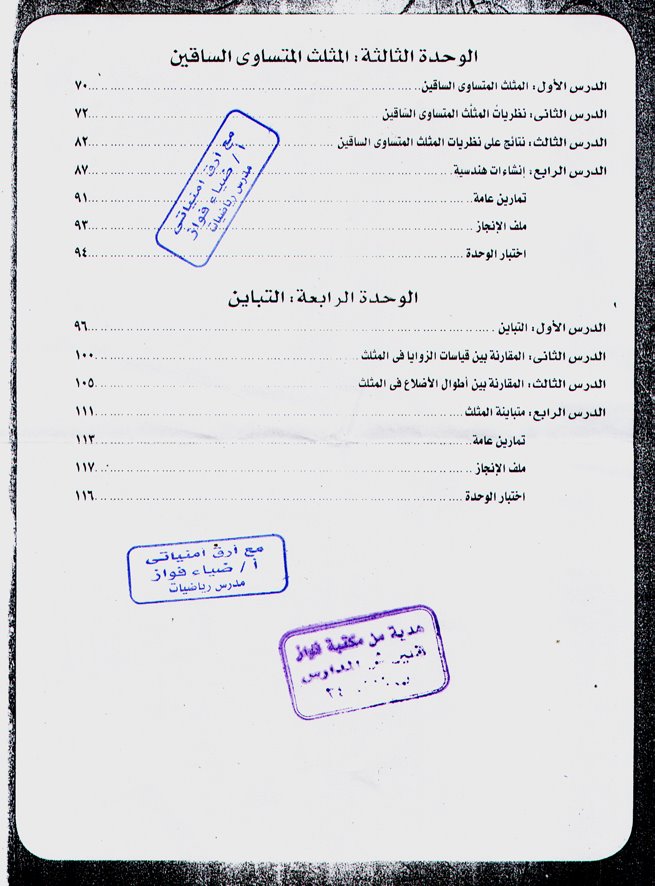 الوحدة الثالثة: المثلث المتساوى الساقين
الدرس الأول: المثلث المتساوى الساقين ٧٠
الدرس الثانى: نظريات المثلث المتساوى الساقين ٧٢
الدرس الثالث: نتائج على نظريات المثلث المتساوى الساقين ٨٢
الدرس الرابع: إنشاءات هندسية ٨٧
تمارين عامة ٩١
ملف الإنجاز ٩٣
اختبار الوحدة ٩٤
مع أرق امنياتى
أ / ضياء فواز
مدرس رياضيات
الوحدة الرابعة: التباين
الدرس الأول: التباين ٩٦
الدرس الثانى: المقارنة بين قياسات الزوايا فى المثلث ١٠٠
الدرس الثالث: المقارنة بين أطوال الأضلاع فى المثلث ١٠٥
الدرس الرابع: متباينة المثلث ١١١
تمارين عامة ١١٣
ملف الإنجاز ١١٧
اختبار الوحدة ١١٦
مع أرق امنياتى
أ / ضياء فواز
مدرس رياضيات
هدية من مكتبة فواز
المدارس